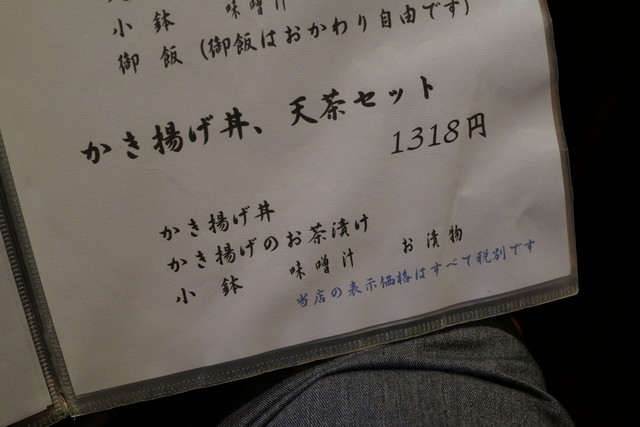 小鉢 味噌汁
御飯 (御飯はおかわり自由です)
かき揚げ丼、天茶セット
1318円
かき揚げ丼
かき揚げのお茶漬け
小鉢 味噌汁 お漬物
当店の表示価格はすべて税別です